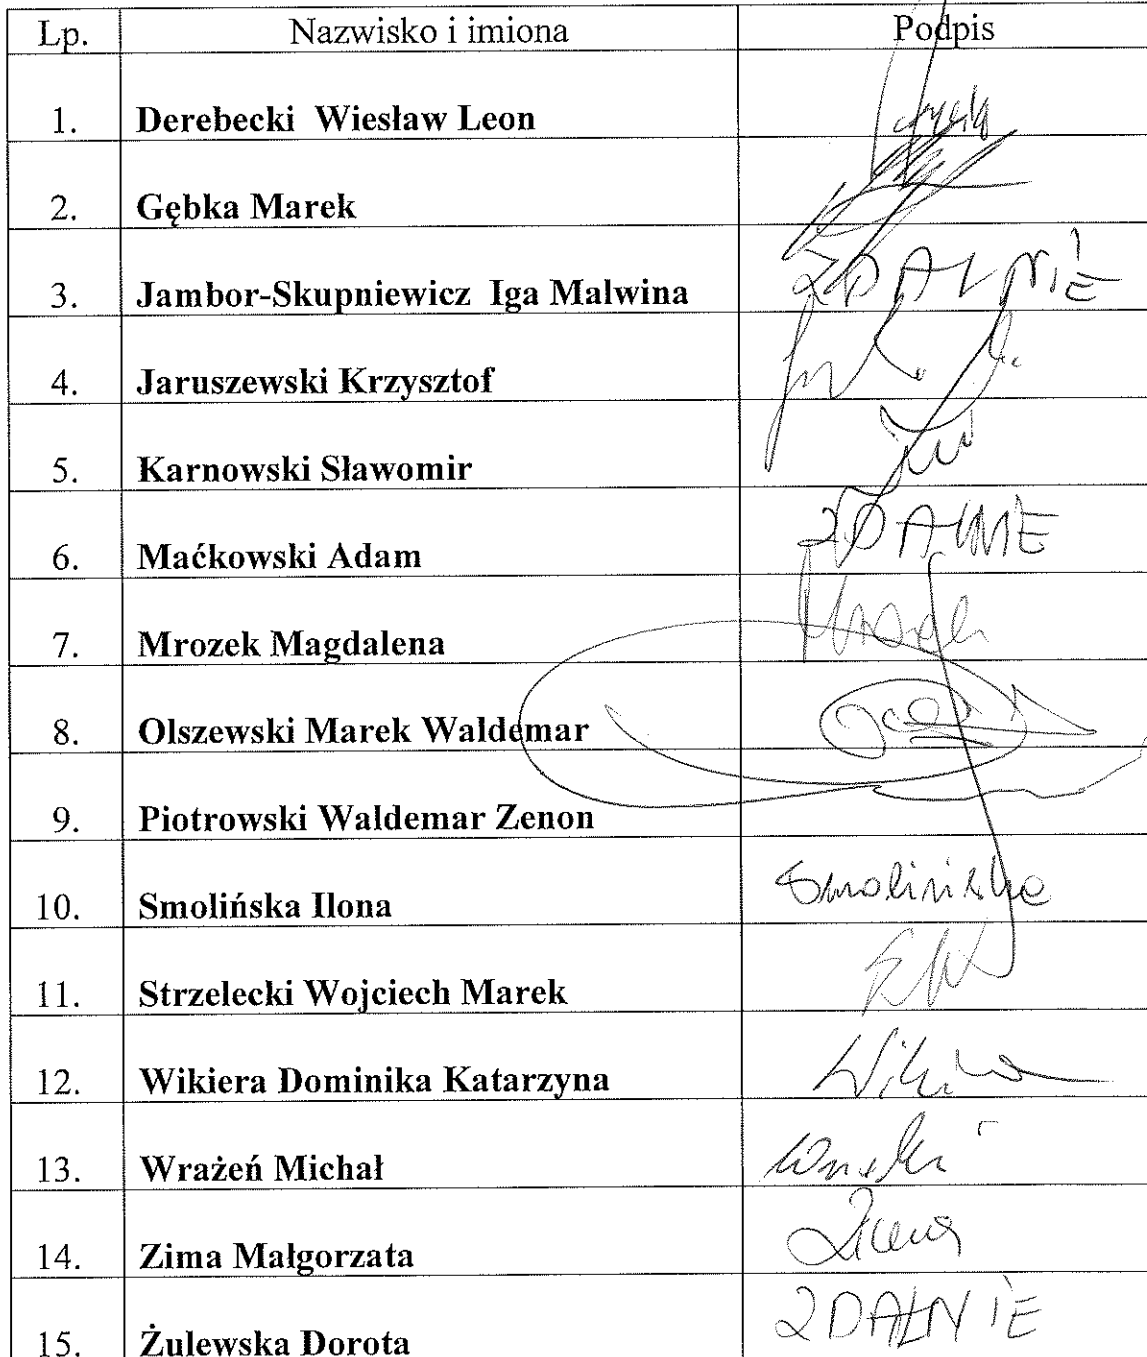 Lp. Nazwisko i imiona Podpis
1. Derebecki Wiesław Leon
2. Gębka Marek
3. Jambor-Skupniewicz Iga Malwina ZDALNIE
4. Jaruszewski Krzysztof
5. Karnowski Sławomir
6. Maćkowski Adam ZDALNIE
7. Mrozek Magdalena
8. Olszewski Marek Waldemar
9. Piotrowski Waldemar Zenon
10. Smolińska Ilona Smolińska
11. Strzelecki Wojciech Marek
12. Wikiera Dominika Katarzyna
13. Wrażeń Michał
14. Zima Małgorzata
15. Żulewska Dorota ZDALNIE